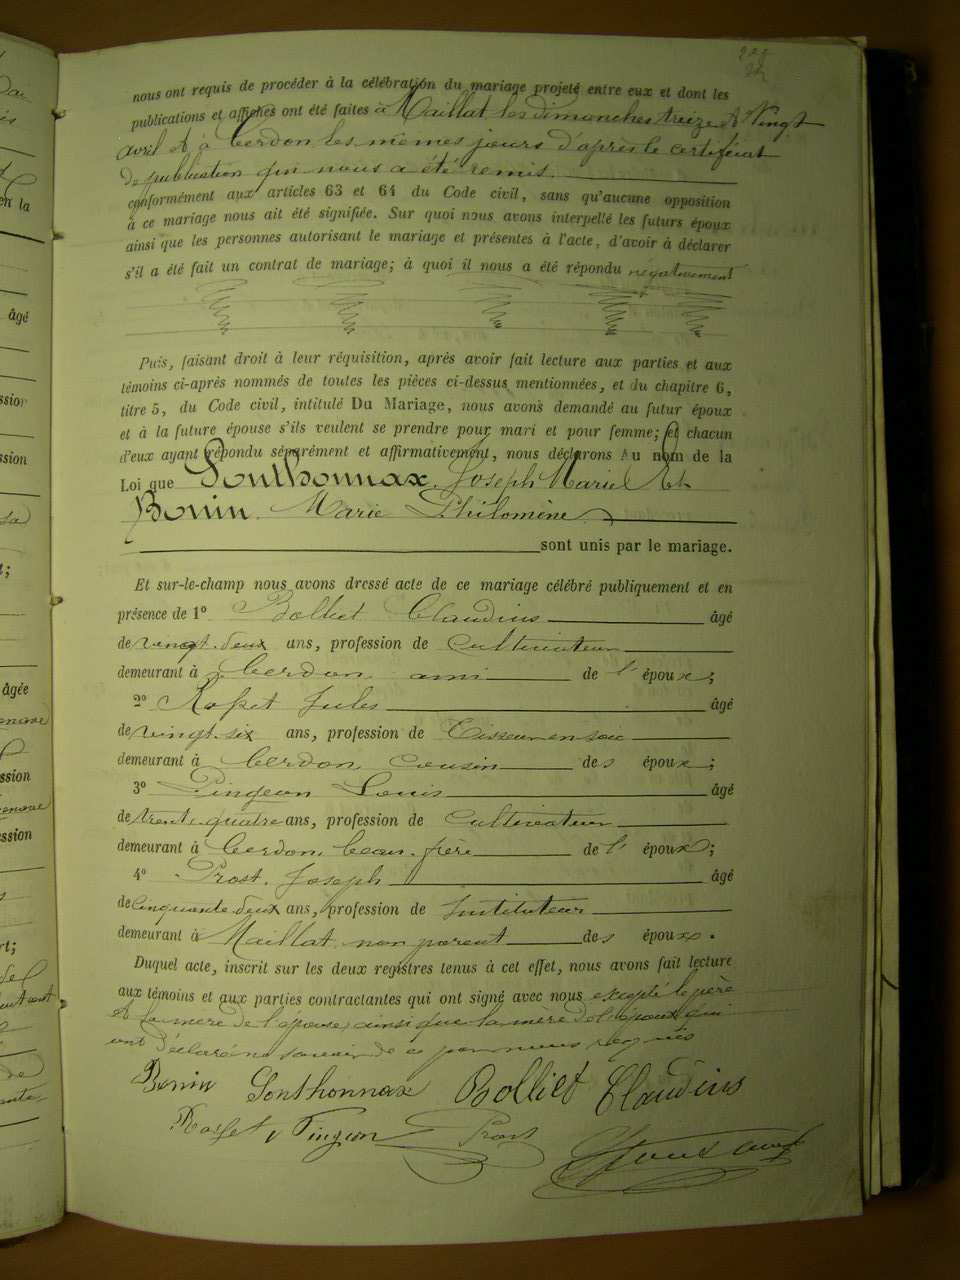 nous ont requis de procéder à la célébration du mariage projeté entre eux et dont les
publications et affiches ont été faites à Maillat les dimanches treize et Vingt
avril et à Cerdon les mêmes jours d'après le certificat
de publication qui nous a été remis.
conformément aux articles 63 et 64 du Code civil, sans qu'aucune opposition
à ce mariage nous ait été signifiée. Sur quoi nous avons interpellé les futurs époux
ainsi que les personnes autorisant le mariage et présentes à l'acte, d'avoir à déclarer
s'il a été fait un contrat de mariage; à quoi il nous a été répondu négativement
Puis, faisant droit à leur réquisition, après avoir fait lecture aux parties et aux
témoins ci-après nommés de toutes les pièces ci-dessus mentionnées, et du chapitre 6,
titre 5, du Code civil, intitulé Du Mariage, nous avons demandé au futur époux
et à la future épouse s'ils veulent se prendre pour mari et pour femme; et chacun
d'eux ayant répondu séparément et affirmativement, nous déclarons Au nom de la
Loi que Sonthonnax Joseph Marie Et
Bonin Marie Philomène
sont unis par le mariage.
Et sur-le-champ nous avons dressé acte de ce mariage célébré publiquement et en
présence de 1° Bolliet Claudius âgé
de vingt-deux ans, profession de cultivateur
demeurant à Cerdon ami de l'époux;
2° Rosset Jules âgé
de vingt-six ans, profession de Tisseur en soie
demeurant à Cerdon, cousin des époux;
3° Pingeon Louis âgé
de trente-quatre ans, profession de Cultivateur
demeurant à Cerdon, beau-frère de l'époux;
4° Prost Joseph âgé
de cinquante-deux ans, profession de Instituteur
demeurant à Maillat, non parent des époux.
Duquel acte, inscrit sur les deux registres tenus à cet effet, nous avons fait lecture
aux témoins et aux parties contractantes qui ont signé avec nous excepté le père
et la mère de l'épouse, ainsi que la mère de l'époux qui
ont déclaré ne savoir de ce par nous requis
Bonin Sonthonnax Bolliet Claudius
Rosset Pingeon Prost